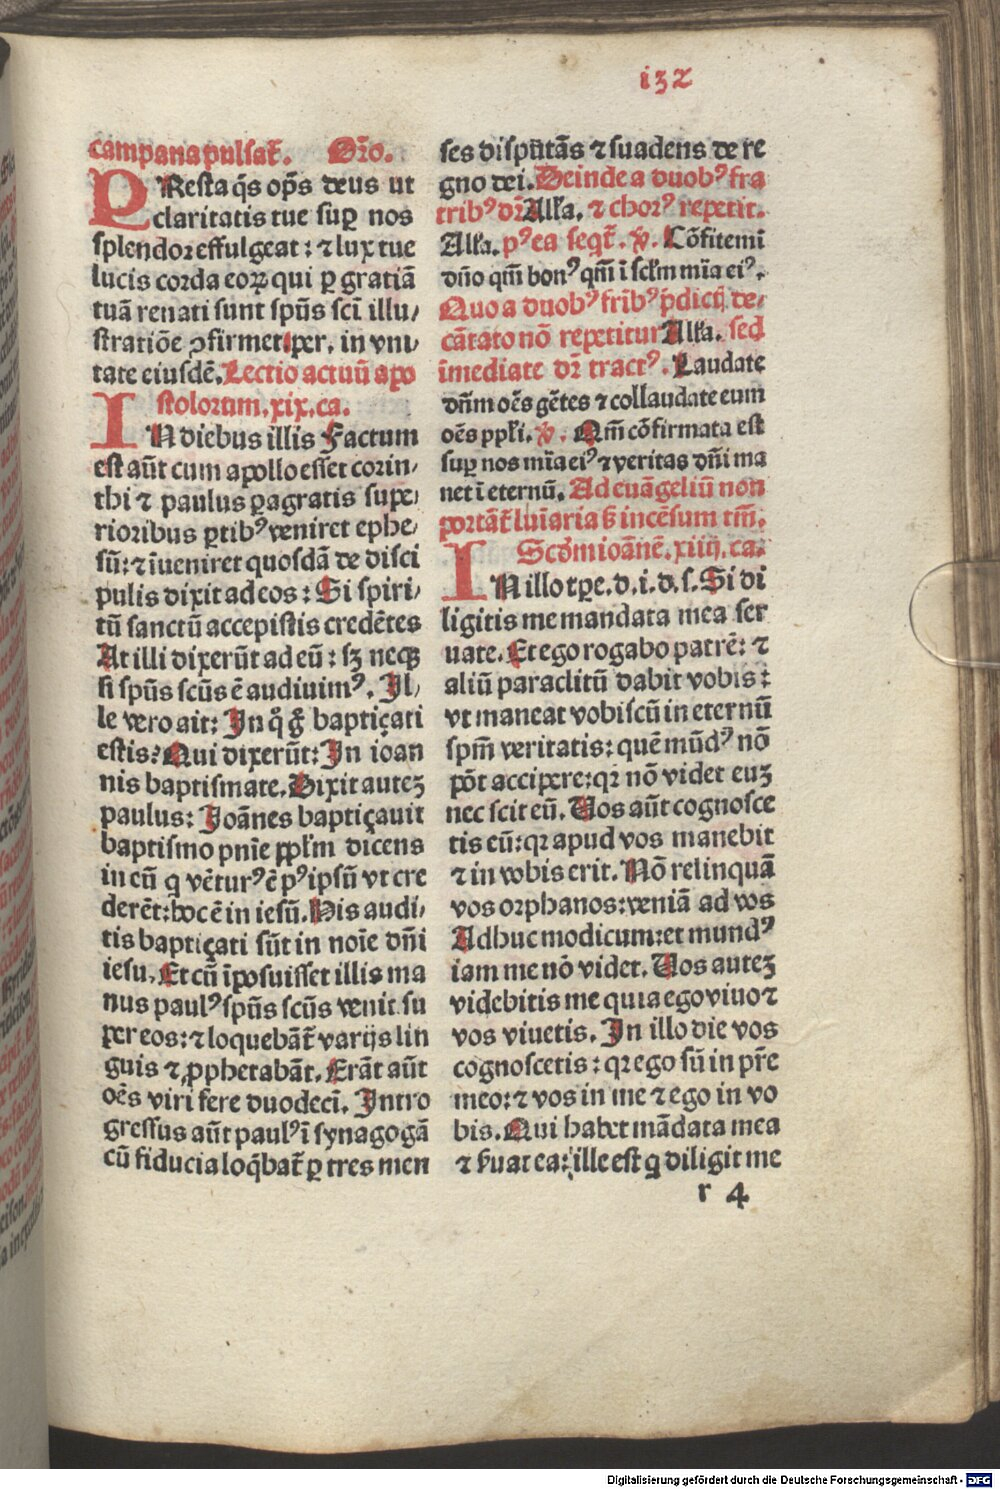 132
campana pulsat᷑. Or̄o.
PResta q̄s op̄s deus ut
claritatis tue sup̲ nos
splendor effulgeat: ⁊ lux tue
lucis corda eoꝝ qui ꝑ gratiā
tuā renati sunt sp̄us sci᷑ illu/
stratiōe ꝯfirmet. per. in vni/
tate eiusdē. Lectio actuū apo
stolorum. xix. ca.
IN diebus illis Factum
est aūt cum apollo esset corin/
thi ⁊ paulus ꝑagratis supe/
rioribus ꝑtibꝰ veniret ephe/
sū: ⁊ īueniret quosdā de disci
pulis dixit ad eos: Si spiri/
tū sanctū accepistis credētes
At illi dixerūt ad eū: sꝫ neqꝫ
si sp̄us scūs ē audiuimꝰ. Il/
le vero ait: In q̊ g̊ baptiçati
estis? Qui dixerūt: In ioan
nis baptismate. Dixit auteꝫ
paulus: Joānes baptiçauit
baptismo pn̄ie ꝓpl̄m dicens
in eū q̇ vēturꝰ ē pꝰ ipsū vt cre
derēt: hoc ē in iesū. His audi/
tis baptiçati sūt in noīe dn̄i
iesu. Et cū īposuisset illis ma
nus paulꝰ sp̄us scūs venit su
per eos: ⁊ loquebāt᷑ varijs lin
guis ⁊ ꝓphetabāt. Erāt aūt
oēs viri fere duodecī. Intro
gressus aūt paulꝰ ī synagogā
cū fiducia loq̄bat᷑ ꝑ tres men
ses disputās ⁊ suadens de re
gno dei. Deinde a duobꝰ fra
tribꝰ dr̄ Alla. ⁊ chorꝰ repetit.
Alla. pꝰ ea seqt᷑. ℣. Cōfitemi
dn̄o qm̄ bonꝰ qm̄ ī scl̄m mīa eiꝰ.
Quo a duobꝰ frībꝰ p̄dictꝭ de/
cātato nō repetitur Alla. sed
īmediate dr̄ tractꝰ. Laudate
dn̄m oēs gētes ⁊ collaudate eum
oēs ppl̄i. ℣. Qm̄ cōfirmata est
sup̲ nos mīa eiꝰ ⁊ veritas dn̄i ma
net ī eternū. Ad euāgeliū non
portāt᷑ luīaria ß incēsum tm̄.
Scd̄m ioānē. xiiij. ca.
IN illo tꝑe. d. i. d. s. Si di
ligitis me mandata mea ser
uate. Et ego rogabo patrē: ⁊
aliū paraclitū dabit vobis:
vt maneat vobiscū in eternū
spm̄ veritatis: quē mūdꝰ nō
pōt accipere: qꝛ nō videt euꝫ
nec scit eū. Vos aūt cognosce
tis eū: qꝛ apud vos manebit
⁊ in vobis erit. Nō relinquā
vos orphanos: veniā ad vos
Adhuc modicum: et mundꝰ
iam me nō videt. Vos auteꝫ
videbitis me quia ego viuo ⁊
vos viuetis. In illo die vos
cognoscetis: qꝛ ego sū in pr̄e
meo: ⁊ vos in me ⁊ ego in vo
bis. Qui habet mādata mea
⁊ ẜuat ea: ille est q̇ diligit me
r 4
Digitalisierung gefördert durch die Deutsche Forschungsgemeinschaft - DFG